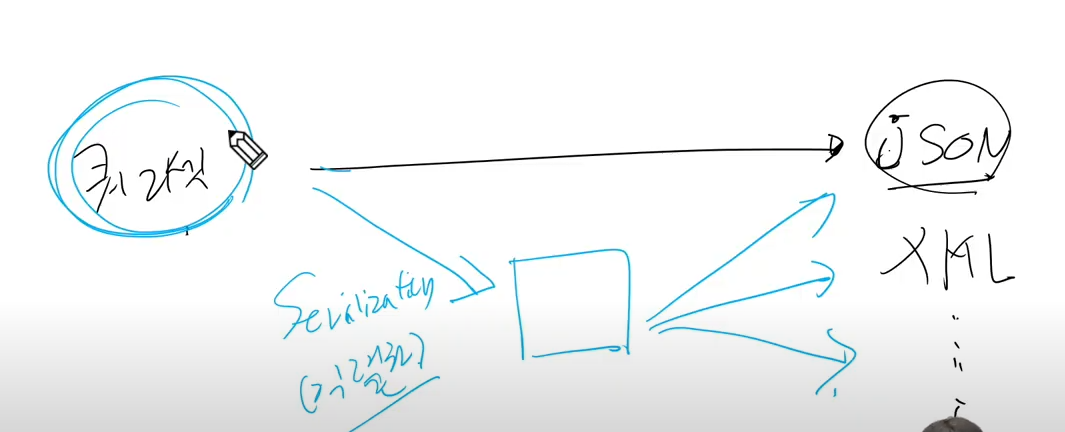 쿼리셋
JSON
XML
Serilization
(직렬화)